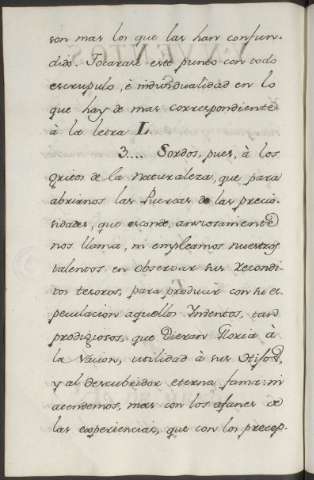 son mas los que las han confun-
dido. Tocarase este punto con todo
escrupulo, è individualidad en lo
que hay de mas correspondiente
à la letra L.
3.... Sordos, pues, à los
gritos de la naturaleza, que para
abrirnos las Puertas de las precio-
sidades, que esconde, ansiosamente
nos llama, ni empleamos nuestros
talentos en observar sus recondi-
tos tesoros, para producir con su es-
peculacion aquellos Inventos, tan
prodigiosos, que Dieran Gloria à
la Nacion, utilidad à sus
y al descubridor eterna fama: ni
atendemos, mas con los afanes de
las experiencias, que con los precep-